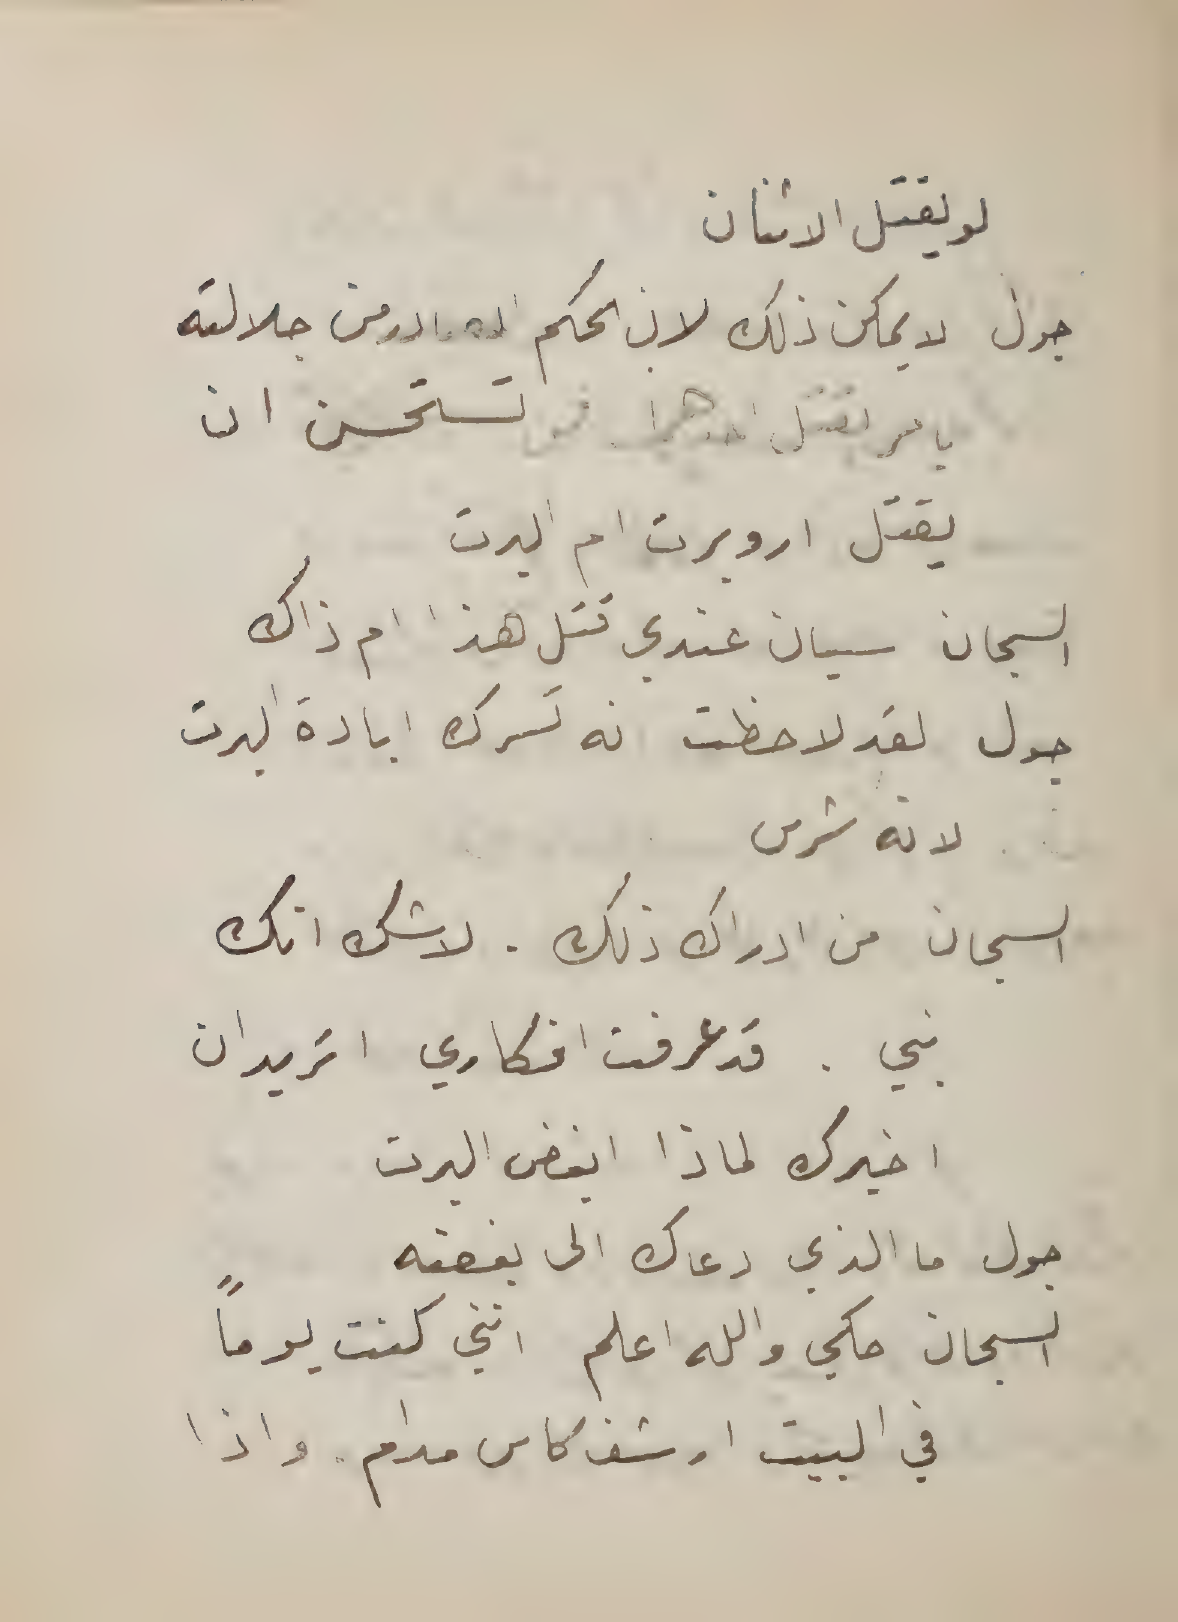 لو يقتل الاثنان
جول لا يمكن ذلك لان الحكم الصادر من جلالته
يامر بقتل احدهما فهل تستحسن ان
يقتل اروبرت ام البرت
السجان سيان عندي قتل هذا ام ذاك
جول لقد لاحظت انه تسرك ابادة البرت
لانه شرس
السجان من ادراك ذلك . لاشك انك
نبي . قد عرفت افكاري اتريد ان
اخبرك لماذا ابغض البرت
جول ما الذي دعاك الى بغضته
السجان حكي والله اعلم انني كنت يوماً
في البيت ارشف كاس مدام . واذا